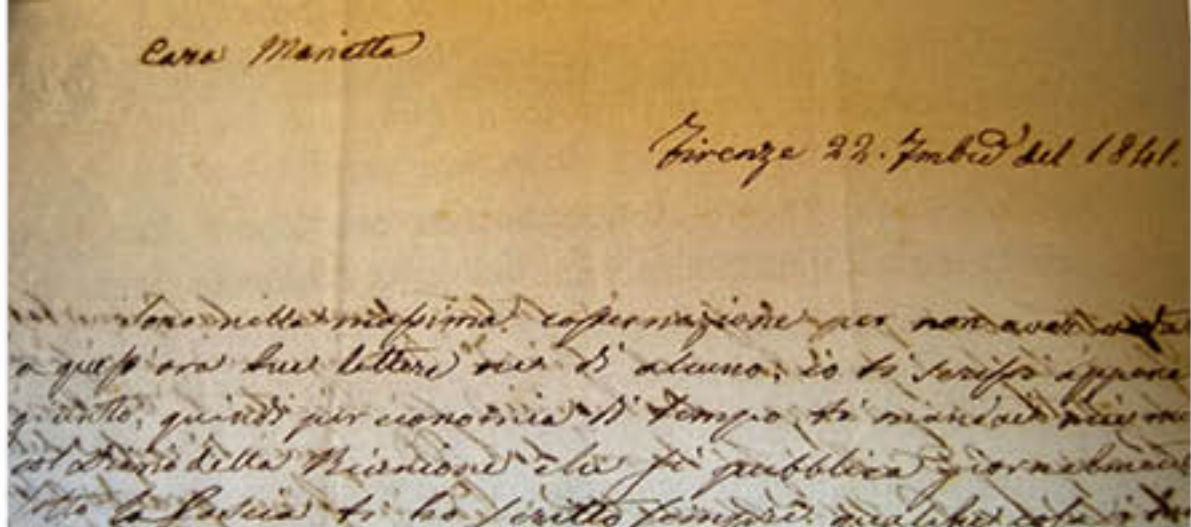 Cara Marietta
Firenze 22. 7mbre del 1841.
Sono nella massima costernazione per non aver
a quest'ora tue lettere nè di alcuno; io ti scrissi appena
giunto, quindi per economia di tempo ti mandai
Diario della Riunione che si pubblica giornalmente
sotto la fascia ti ho scritto sempre qualche